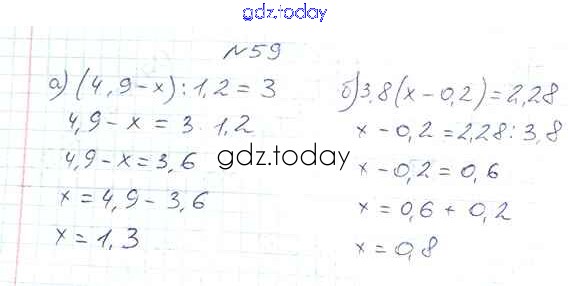 gdz.today
N59
а) (4,9-x):1,2=3
4,9-x = 3 · 1,2
4,9-x=3,6
x=4,9-3,6
x=1,3
б) 3,8(x-0,2)=2,28
x-0,2=2,28:3,8
x-0,2=0,6
x=0,6+0,2
x=0,8
gdz.today